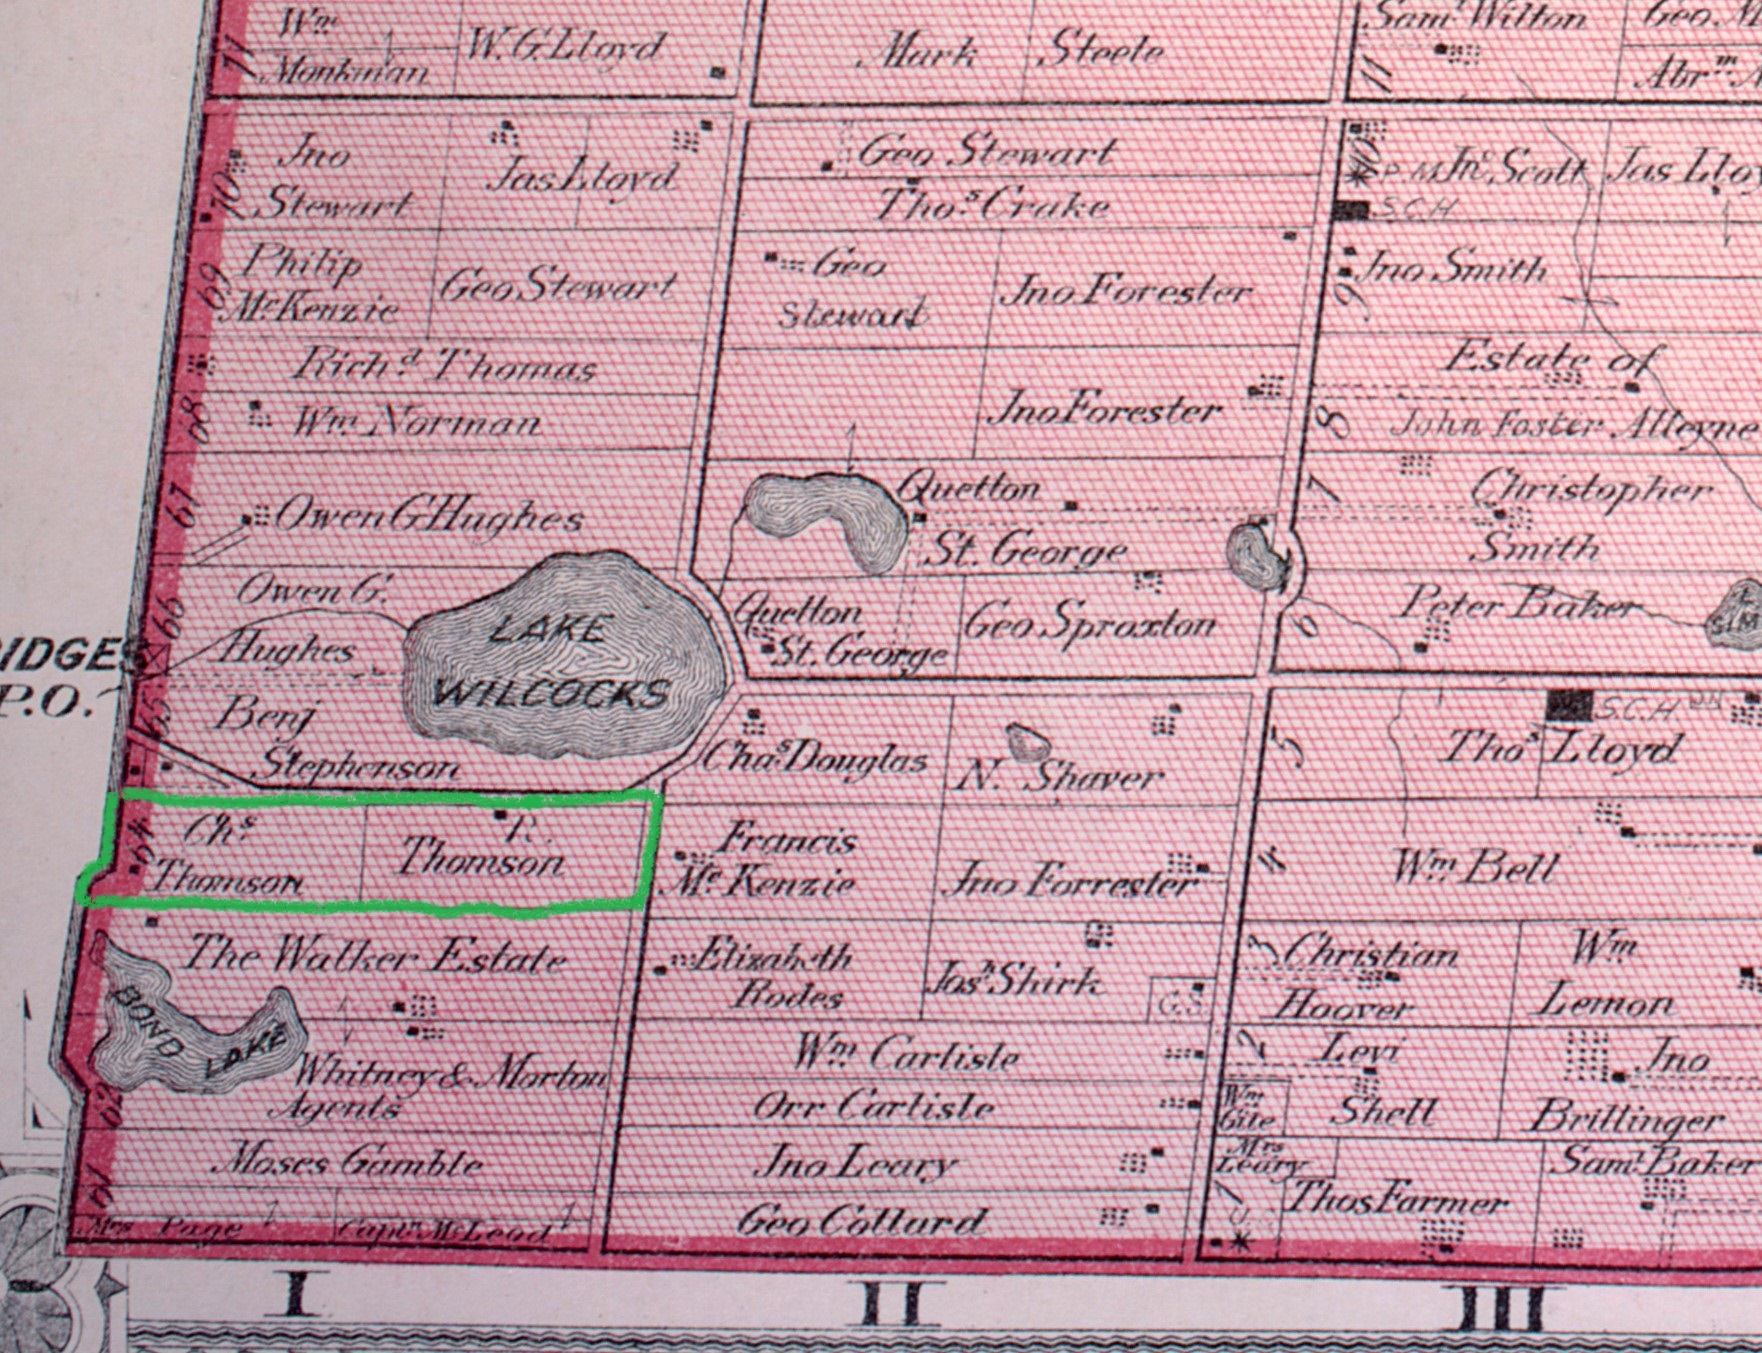 11
Wm
Monkman
W.G. Lloyd
Mark Steele
11
Saml Wilton
Geo
Abrm
Jno
Stewart
Jas Lloyd
Geo Stewart
Thos. Crake
P.M. Jno Scott
Jas Lloy
S.C.H
Philip
McKenzie
Geo Stewart
Geo
Stewart
Jno Forester
9
Jno Smith
69
Richd. Thomas
68
Wm. Norman
Jno Forester
8
Estate of
John Foster Alleyne
67
Owen G Hughes
Quetton
St. George
7
Christopher
Smith
66
Owen G.
Hughes
LAKE
WILCOCKS
Quetton
St. George
Geo Sproxton
6
Peter Baker
IDGES
P.O.
65
Benj
Stephenson
Chas Douglas
N. Shaver
5
S.C.H
Thos Lloyd
64
Chs
Thomson
R.
Thomson
Francis
McKenzie
Jno Forrester
4
Wm Bell
The Walker Estate
Elizabeth
Rodes
Josh Shirk
G.S.
3
Christian
Hoover
Wm
Lemon
BOND
LAKE
Whitney & Morton
Agents
62
Wm Carlisle
Orr Carlisle
2
Levi
Shell
Wm
Gile
Jno
Brillinger
61
Moses Gamble
Jno Leary
Mrs
Leary
Saml Baker
Mrs Page
Captn McLeod
Geo Collard
1
Thos Farmer
I
II
III